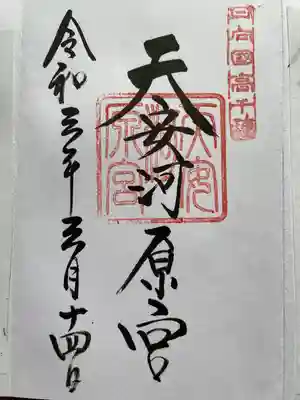 日向國高千穂
天安河原宮
令和三年三月十四日